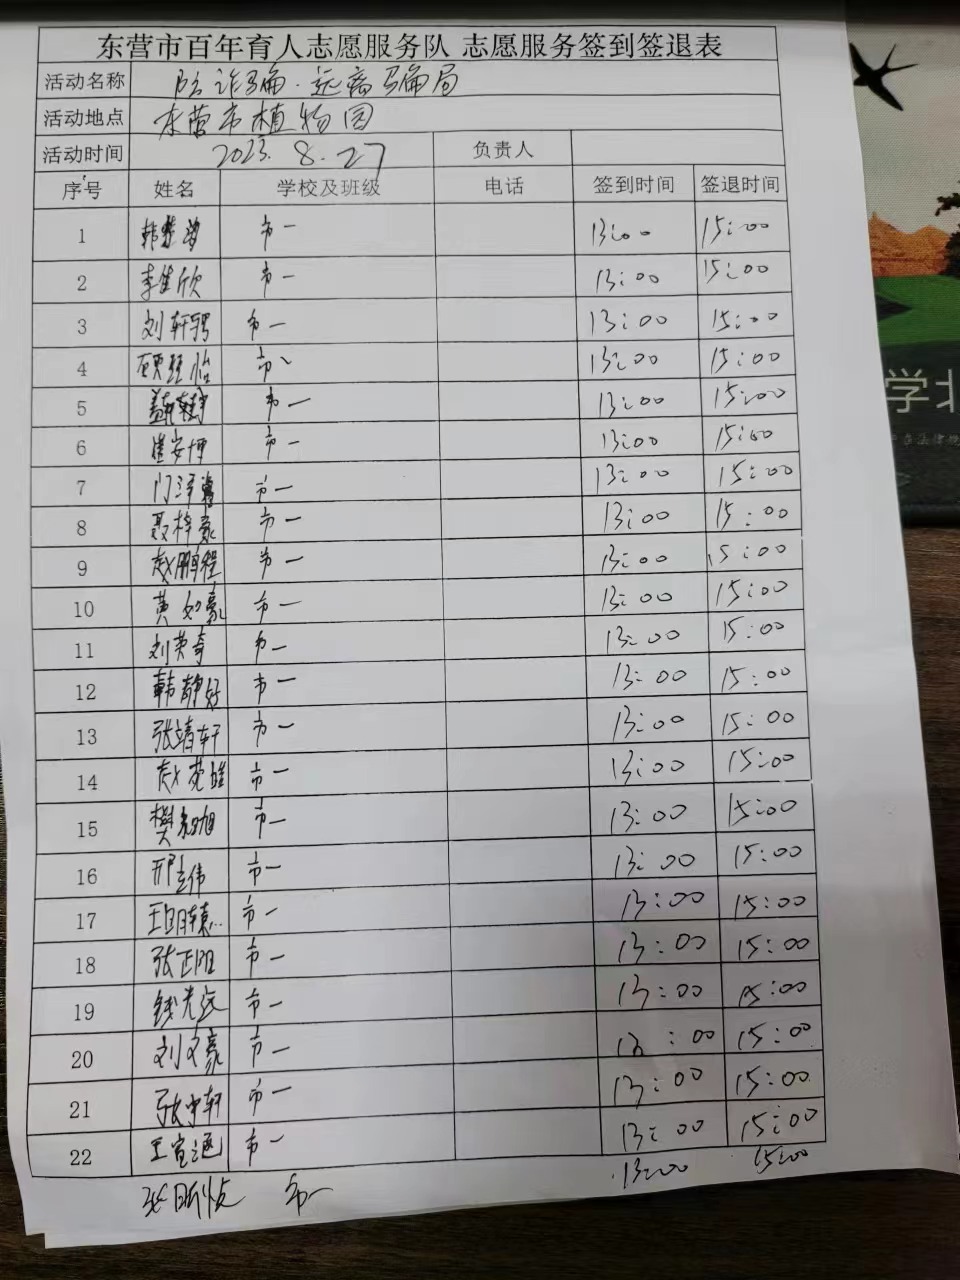 东营市百年育人志愿服务队 志愿服务签到签退表
活动名称 防诈骗·远离骗局
活动地点 东营市植物园
活动时间 2023.8.27 负责人
序号 姓名 学校及班级 电话 签到时间 签退时间
1 韩 市一 13:00 15:00
2 李佳欣 市一 13:00 15:00
3 刘轩骋 市一 13:00 15:00
4 顾 怡 市一 13:00 15:00
5 市一 13:00 15:00
6 崔安博 市一 13:00 15:00
7 门泽 市一 13:00 15:00
8 聂梓豪 市一 13:00 15:00
9 赵鹏程 市一 13:00 15:00
10 黄如豪 市一 13:00 15:00
11 刘荣奇 市一 13:00 15:00
12 韩静好 市一 13:00 15:00
13 张靖轩 市一 13:00 15:00
14 赵 市一 13:00 15:00
15 樊 旭 市一 13:00 15:00
16 邢 伟 市一 13:00 15:00
17 王 市一 13:00 15:00
18 张正阳 市一 13:00 15:00
19 钱光远 市一 13:00 15:00
20 刘文豪 市一 13:00 15:00
21 张宇轩 市一 13:00 15:00
22 王宣涵 市一 13:00 15:00
张昕 市一 13:00 15:00
学北